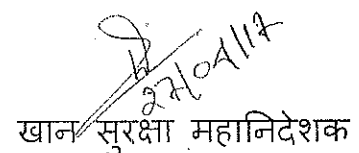 27/04/17
खान सुरक्षा महानिदेशक